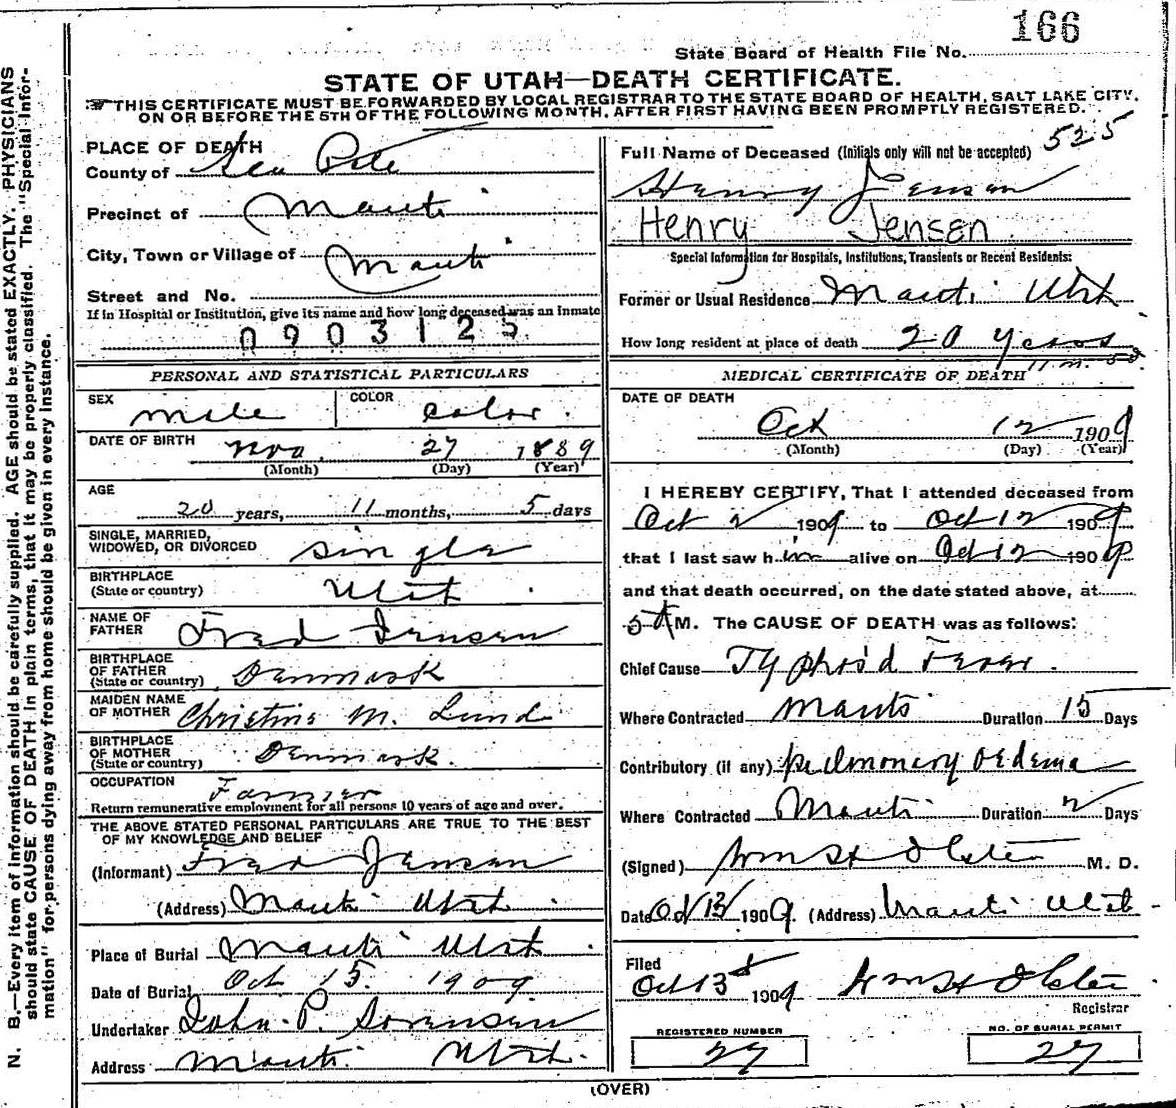 166
State Board of Health File No.
STATE OF UTAH—DEATH CERTIFICATE.
☞THIS CERTIFICATE MUST BE FORWARDED BY LOCAL REGISTRAR TO THE STATE BOARD OF HEALTH, SALT LAKE CITY,
ON OR BEFORE THE 5TH OF THE FOLLOWING MONTH, AFTER FIRST HAVING BEEN PROMPTLY REGISTERED.
N. B.—Every item of information should be carefully supplied. AGE should be stated EXACTLY. PHYSICIANS
should state CAUSE OF DEATH in plain terms, that it may be properly classified. The "Special Infor-
mation" for persons dying away from home should be given in every instance.
PLACE OF DEATH
County of San Pete
Precinct of Manti
City, Town or Village of Manti
Street and No.
If in Hospital or Institution, give its name and how long deceased was an inmate
0903125
PERSONAL AND STATISTICAL PARTICULARS
SEX Male COLOR color.
DATE OF BIRTH Nov 27 1889
(Month) (Day) (Year)
AGE
20 years, 11 months, 5 days
SINGLE, MARRIED,
WIDOWED, OR DIVORCED single
BIRTHPLACE
(State or country) Utah
NAME OF
FATHER Fred Jensen
BIRTHPLACE
OF FATHER
(State or country) Denmark
MAIDEN NAME
OF MOTHER Christine M. Lund
BIRTHPLACE
OF MOTHER
(State or country) Denmark.
OCCUPATION Farmer
Return remunerative employment for all persons 10 years of age and over.
THE ABOVE STATED PERSONAL PARTICULARS ARE TRUE TO THE BEST
OF MY KNOWLEDGE AND BELIEF
(Informant) Fred Jensen
(Address) Manti Utah
Place of Burial Manti Utah
Date of Burial Oct 15. 1909
Undertaker John P. Sorensen
Address Manti Utah.
525
Full Name of Deceased (Initials only will not be accepted)
Henry Jensen
Henry Jensen
Special Information for Hospitals, Institutions, Transients or Recent Residents:
Former or Usual Residence Manti Utah
How long resident at place of death 20 years
11 m. 5 d.
MEDICAL CERTIFICATE OF DEATH
DATE OF DEATH
Oct 12 1909
(Month) (Day) (Year)
I HEREBY CERTIFY, That I attended deceased from
Oct 2 1909 to Oct 12 1909
that I last saw him alive on Oct 12 1909
and that death occurred, on the date stated above, at
5 A M. The CAUSE OF DEATH was as follows:
Chief Cause Typhoid Fever.
Where Contracted Manti Duration 15 Days
Contributory (if any) Pulmonary Oedema
Where Contracted Manti Duration 2 Days
(Signed) Wm H Olsten M. D.
Date Oct 13 1909. (Address) Manti Utah
Filed
Oct 13th 1909 Wm H Olsten
Registrar
REGISTERED NUMBER NO. OF BURIAL PERMIT
27 27
(OVER)